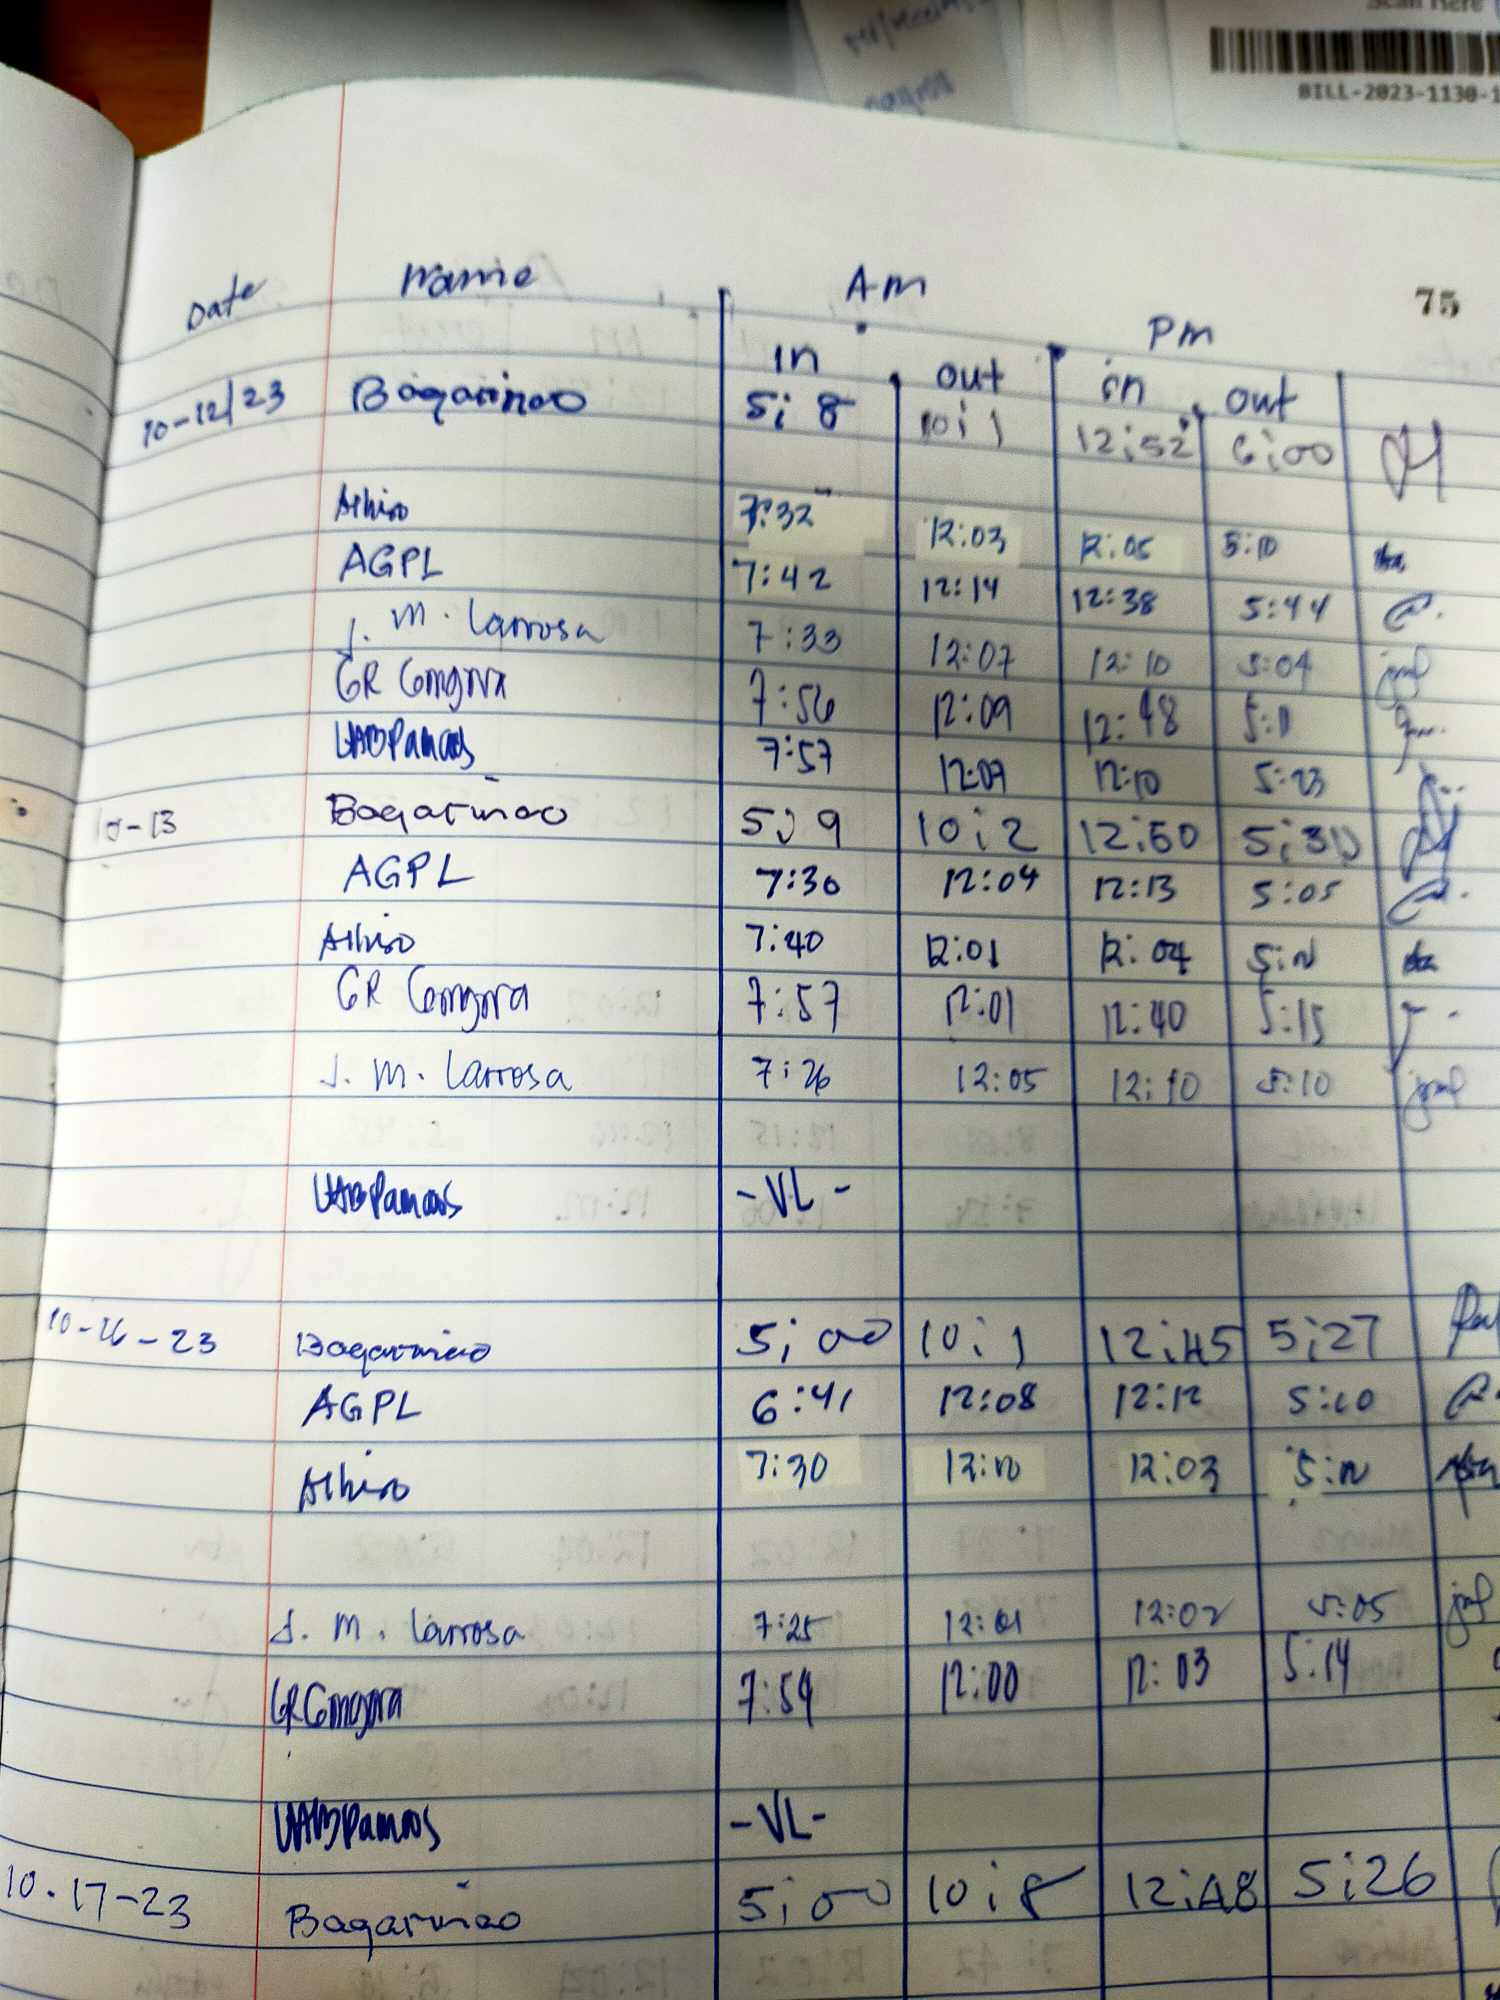 Scan Here
BILL-2023-1130-1
75
Date Name Am Pm
in out in out
10-12/23 Bagarinao 5;8 10;1 12;52 6;00
Alhiso 7:32 12:03 12:05 5:10
AGPL 7:42 12:14 12:38 5:44
J. M. Larrosa 7:33 12:07 12:10 5:04
GR Gongora 7:56 12:09 12:48 5:11
7:57 12:07 12:10 5:23
10-13 Bagarinao 5;9 10;2 12;50 5;30
AGPL 7:30 12:04 12:13 5:05
Alhiso 7:40 12:01 12:04
GR Gongora 7:57 12:01 12:40 5:15
J. M. Larrosa 7:26 12:05 12:10 5:10
-VL-
10-16-23 Bagarinao 5;00 10;1 12;45 5;27
AGPL 6:41 12:08 12:12 5:10
Alhiso 7:30 12:03
J. M. Larrosa 7:25 12:01 12:02 5:05
GR Gongora 7:59 12:00 12:03 5:14
-VL-
10-17-23 Bagarinao 5;00 10;8 12;48 5;26